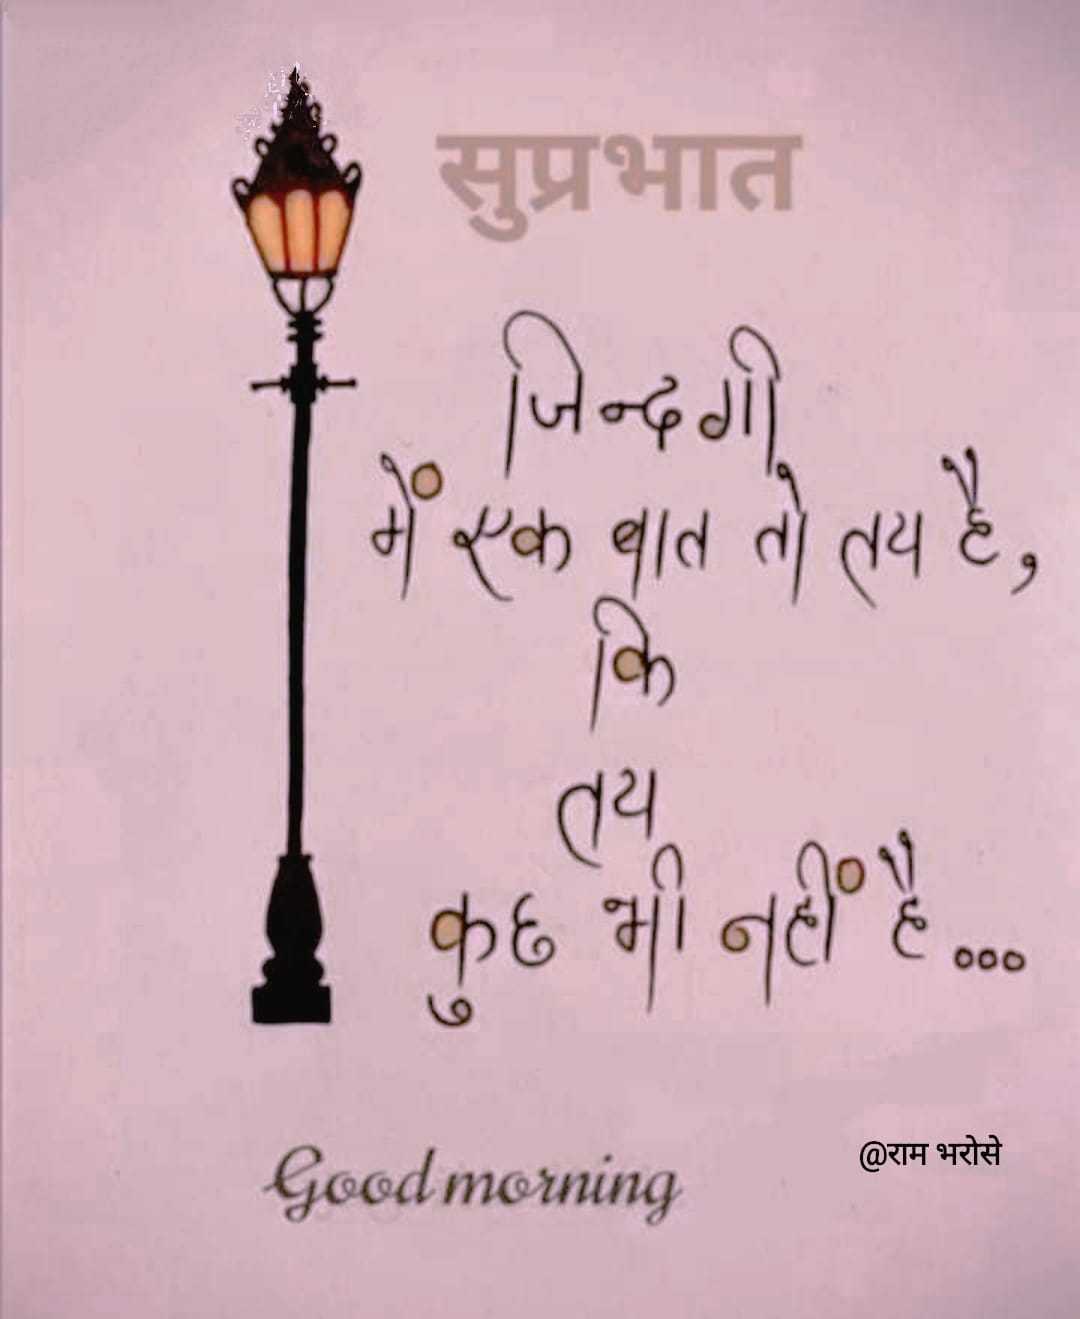 सुप्रभात
जिन्दगी
में एक बात तो तय है,
कि
तय
कुछ भी नहीं है...
@राम भरोसे
Good morning